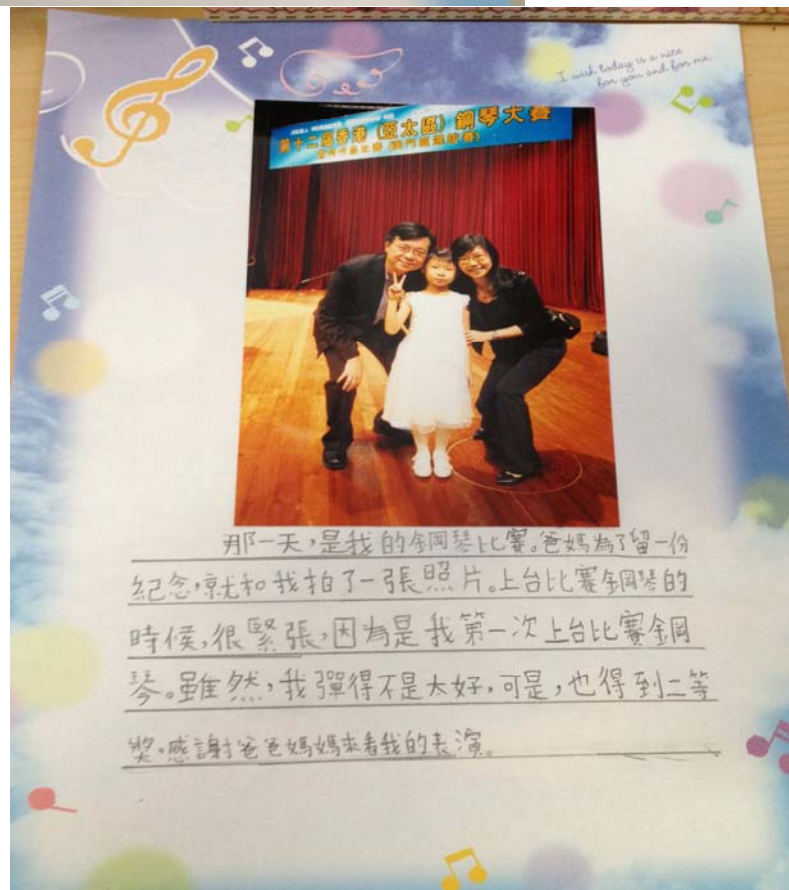 I wish today is a nice
for you and for me
第十二屆香港(亞太區)鋼琴大賽
那一天,是我的鋼琴比賽。爸媽為了留一份
紀念,就和我拍了一張照片。上台比賽鋼琴的
時侯,很緊張,因為是我第一次上台比賽鋼
琴。雖然,我彈得不是太好,可是,也得到二等
獎。感謝爸爸媽媽來看我的表演。